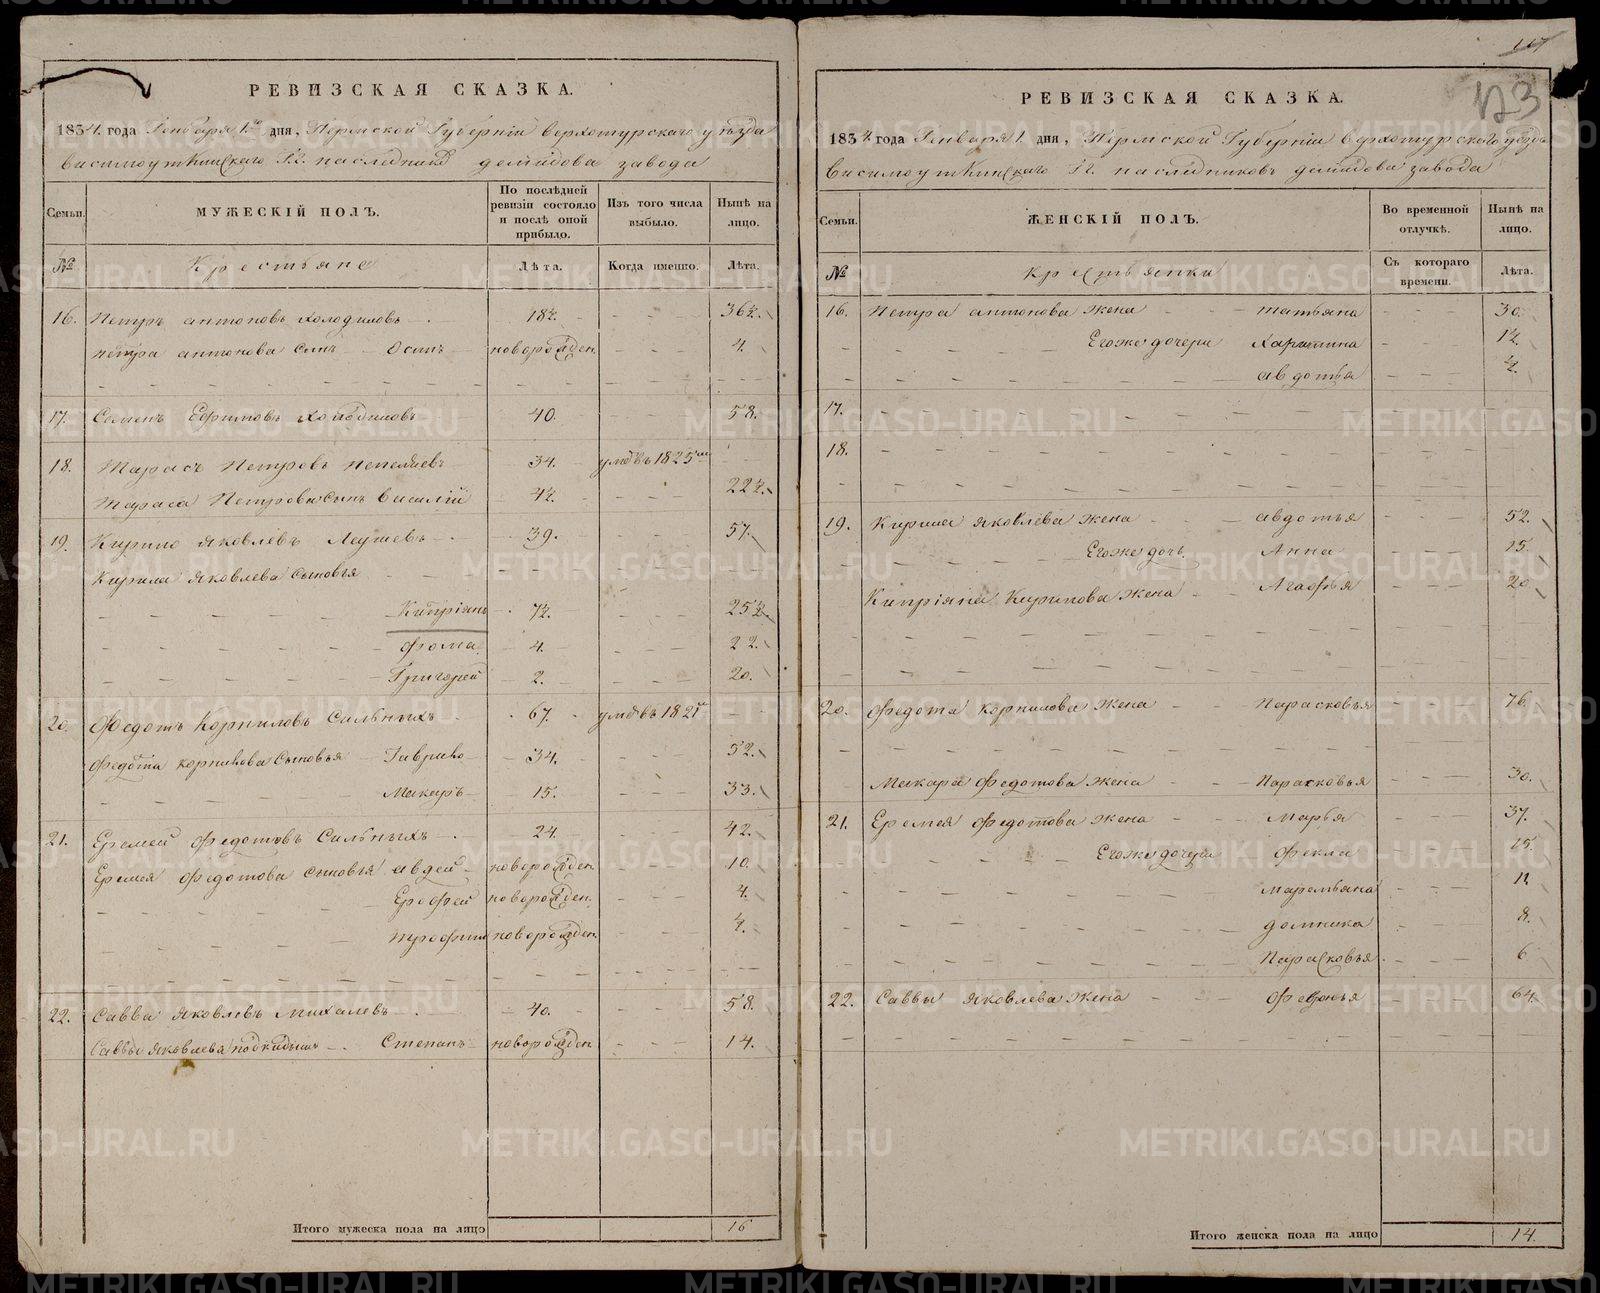 РЕВИЗСКАЯ СКАЗКА.
1834. года Генваря 1го дня, Пермской Губернiи верхотурскаго уѣзда
висимоуткинскаго Гг. наследников демидова завода
Семьи. МУЖЕСКІЙ ПОЛЪ. По послѣдней ревизіи состояло и послѣ оной прибыло. Изъ того числа выбыло. Нынѣ на лицо.
№ Крестьяне Лѣта. Когда именно. Лѣта.
16. Петръ антоновъ холодиловъ 18½. 36½.
петра антонова сынъ Осипъ новорожден. 4.
17. Семенъ Ефимовъ Холодиловъ 40. 58.
18. Тарасъ Петровъ 34. умръ въ 1825м
Тараса Петрова сынъ василій 4½. 22½.
19. Кирило яковлевъ 39. 57.
Кирила яковлева сыновья
Кипріянъ 7½. 25½.
фома 4. 22.
Григорей 2. 20.
20. Федотъ Корниловъ Сильныхъ 67. умръ въ 182
федота корнилова сыновья Гаврило 34. 52.
Макаръ 15. 33.
21. Еремей федотовъ Сильныхъ 24. 42.
Еремея федотова сыновья авдей новорожден. 10.
Ерофей новорожден. 4.
трофим новорожден. ½.
22. Савва яковлевъ михалевъ 40. 58.
Саввы яковлева подкидышъ Степанъ новорожден 14.
Итого мужеска пола на лицо 16
117
123
РЕВИЗСКАЯ СКАЗКА.
1834 года Генваря 1. дня, Пермской Губернiи верхотурскаго уѣзда
висимоуткинскаго Гг. наследниковъ демидова завода
Семьи. ЖЕНСКІЙ ПОЛЪ. Во временной отлучкѣ. Нынѣ на лицо.
№ крестьянки Съ котораго времени. Лѣта.
16. Петра антонова жена татьяна 30.
Егоже дочери Харитина 12.
авдотья ½.
17.
18.
19. Кирила яковлева жена авдотья 52.
Егоже дочь Анна 15.
Кипріяна Кирилова жена Агафья 20
20. федота корнилова жена Парасковья 76.
Макара федотова жена Парасковья 30.
21. Еремея федотова жена Марья 37.
Егоже дочери Фекла 15.
маремьяна 11.
домника 8.
Парасковья 6
22. Саввы яковлева жена 64.
Итого женска пола на лицо 14.
METRIKI.GASO-URAL.RU